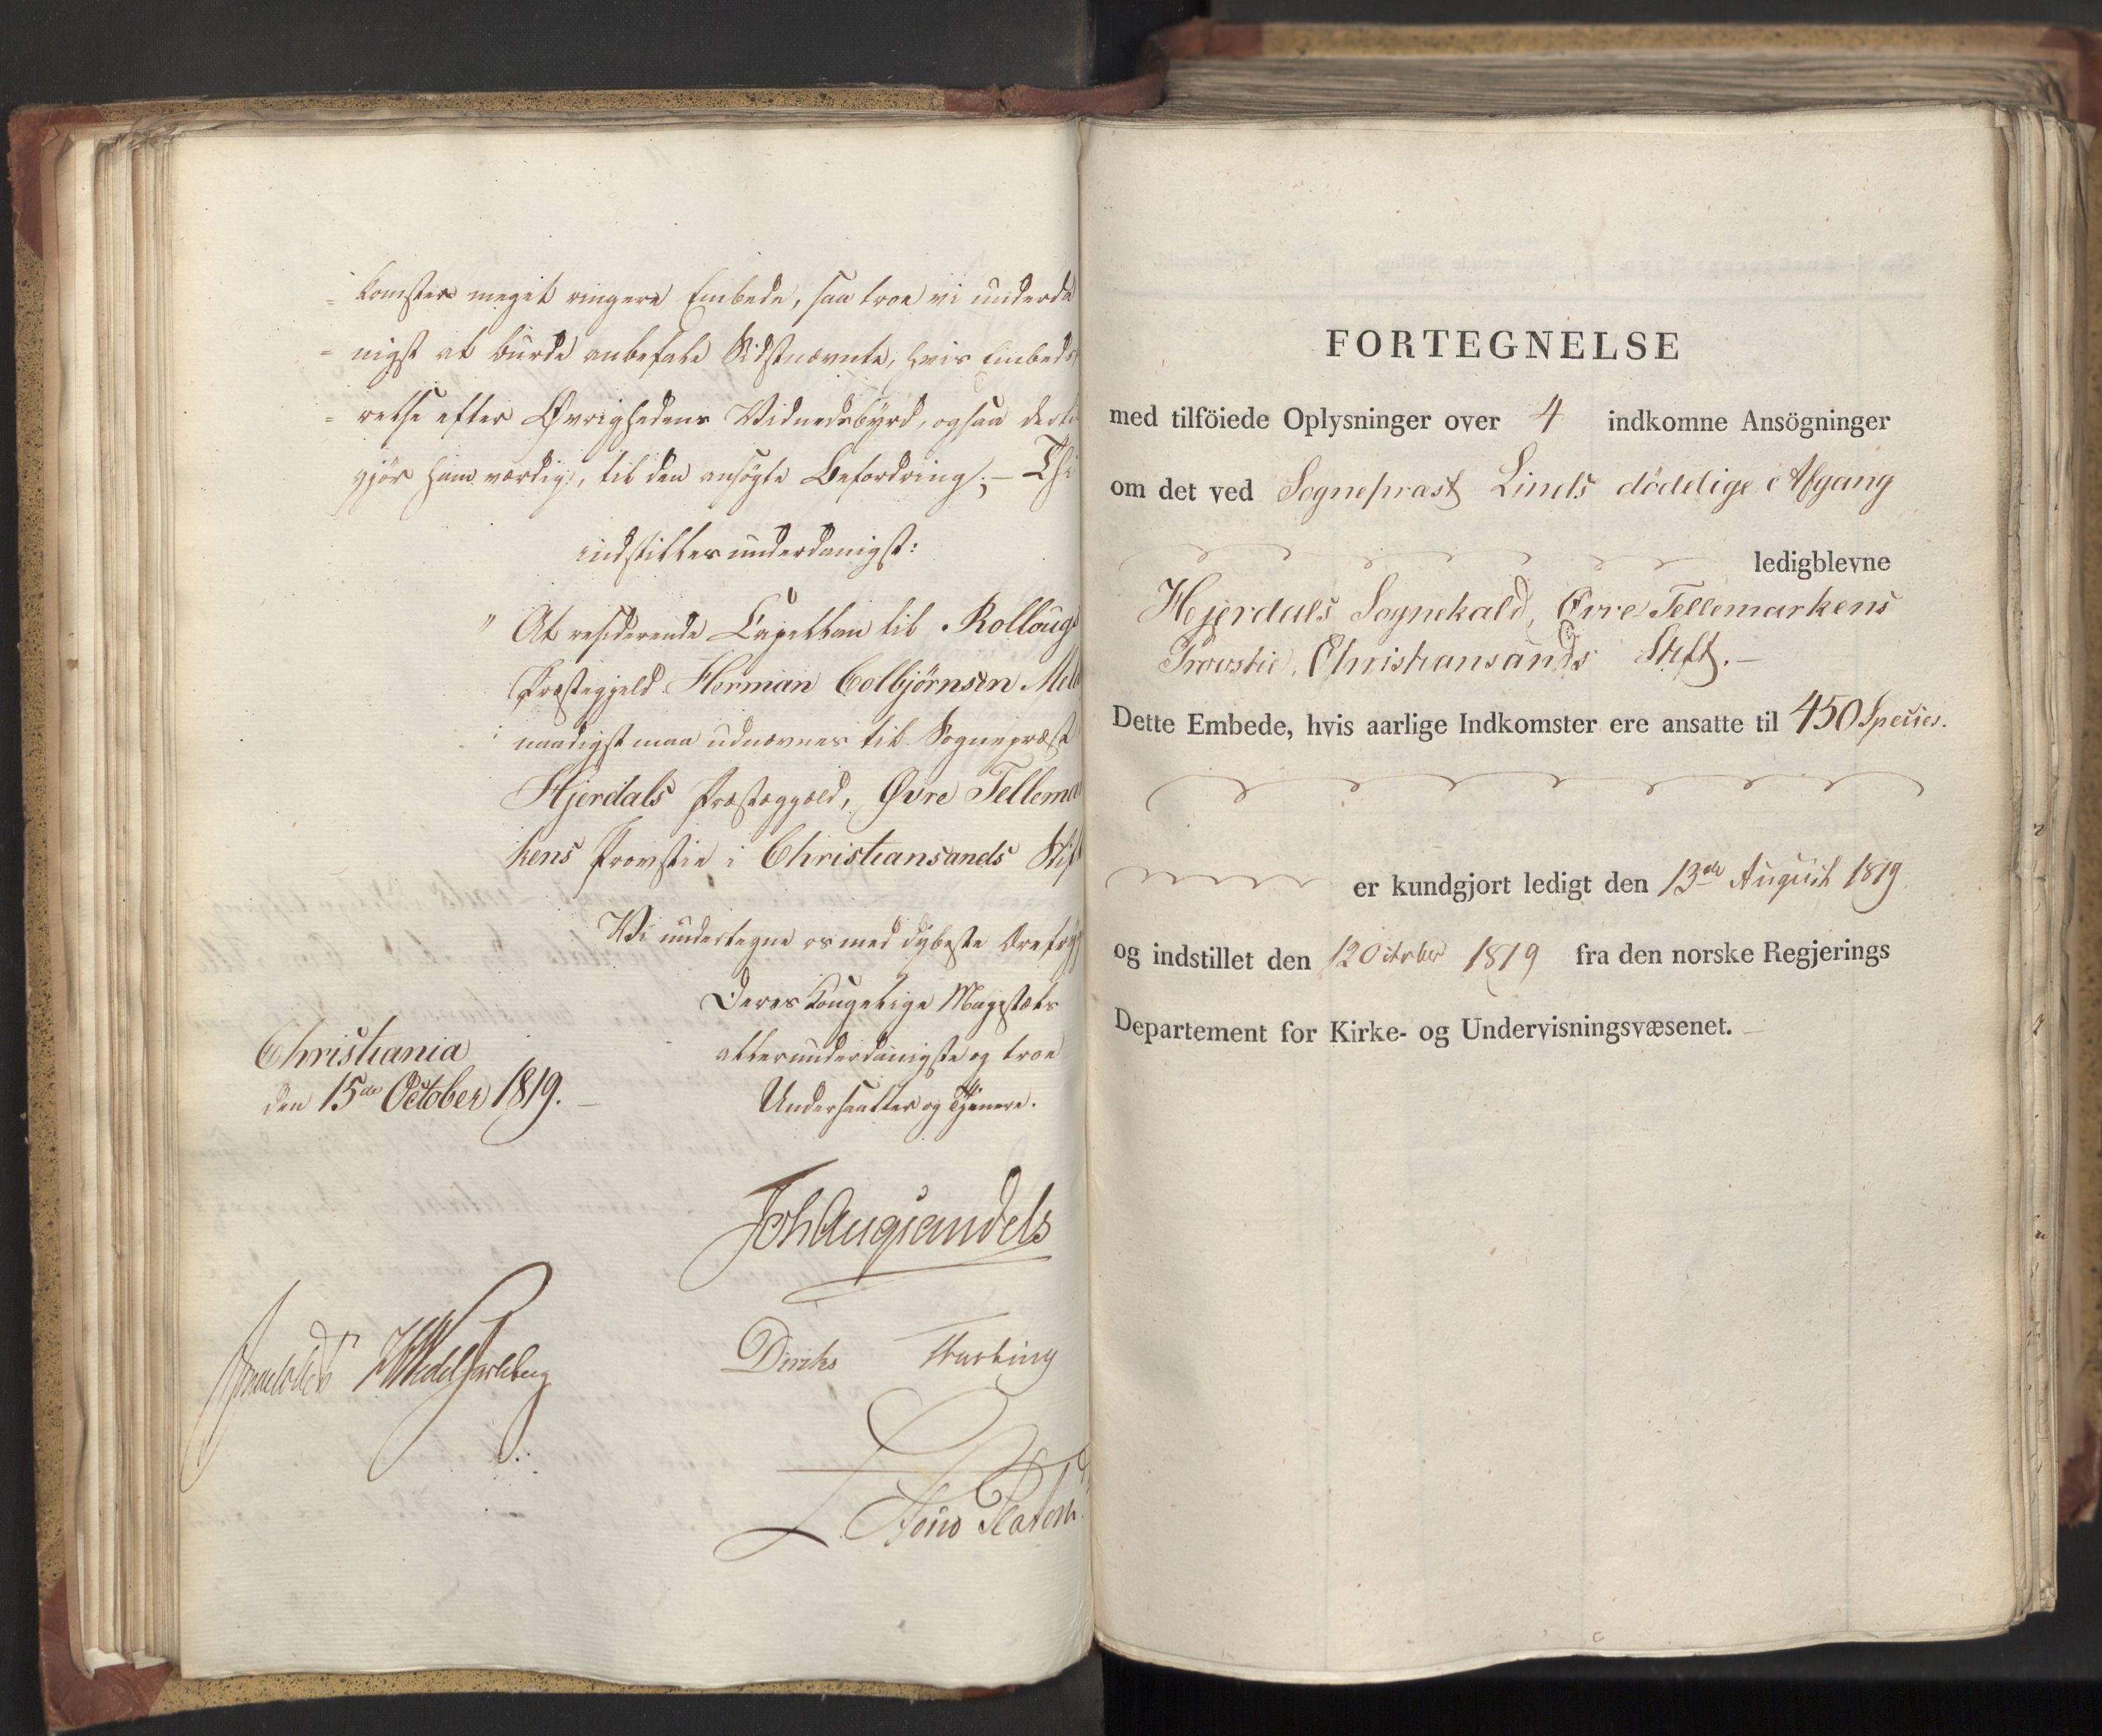 komster meget ringere Embede, saa troe vi underda
nigst at burde anbefale Sidstnævnte, hvis Embeds
relse efter Øvrighedens Vidnedsbyrd, ogsaa dertil
gjør ham værdig, til den ansøgte Befordring; – Thi
indstilles underdanigst:
" At residerende Capellan til Rolloug
Præstegjeld Herman Colbjørnsen
naadigst maa udnævnes til Sognepræst
Hjerdals Præstegjæld, Øvre Tellema
kens Provstie i Christiansands Stift
Vi undertegne os med dybeste Ærefrygt
Deres Kongelige Majestæts
allerunderdanigste og troe
Undersaatter og Tjenere.
Christania
den 15de October 1819. –
JohAugSandels
HWedelJarlsberg
Diriks
FORTEGNELSE
med tilföiede Oplysninger over 4 indkomne Ansögninger
om det ved Sognepræst Linds dödelige Afgang
ledigblevne
Hjerdals Sognekald, Øvre Tellemarkens
Provstie, Christiansands Stift. –
Dette Embede, hvis aarlige Indkomster ere ansatte til 450 Species.
er kundgjort ledigt den 13de August 1819
og indstillet den 12 October 1819 fra den norske Regjerings
Departement for Kirke- og Undervisningsvæsenet.